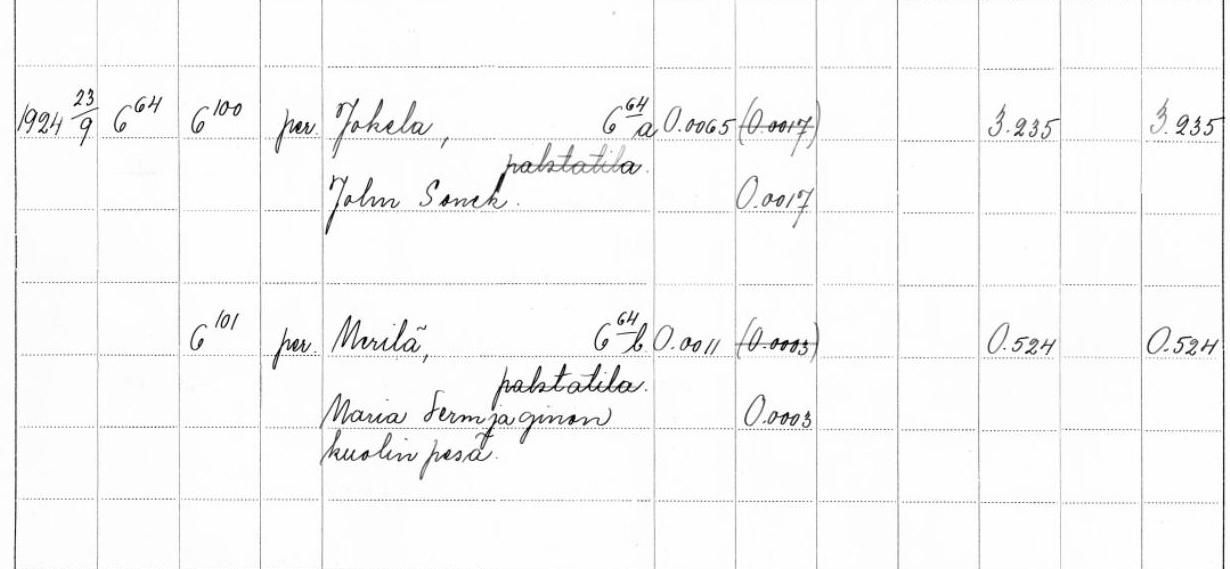 1924 23/9 6^64 6^100 per. Jokela, 6^64 a 0.0065 (0.0017) 3.235 3.235
palstatila.
John Sonck. 0.0017
6^101 per. Merilä, 6^64 b 0.0011 (0.0003) 0.524 0.524
palstatila.
Maria 0.0003
kuolin pesä.